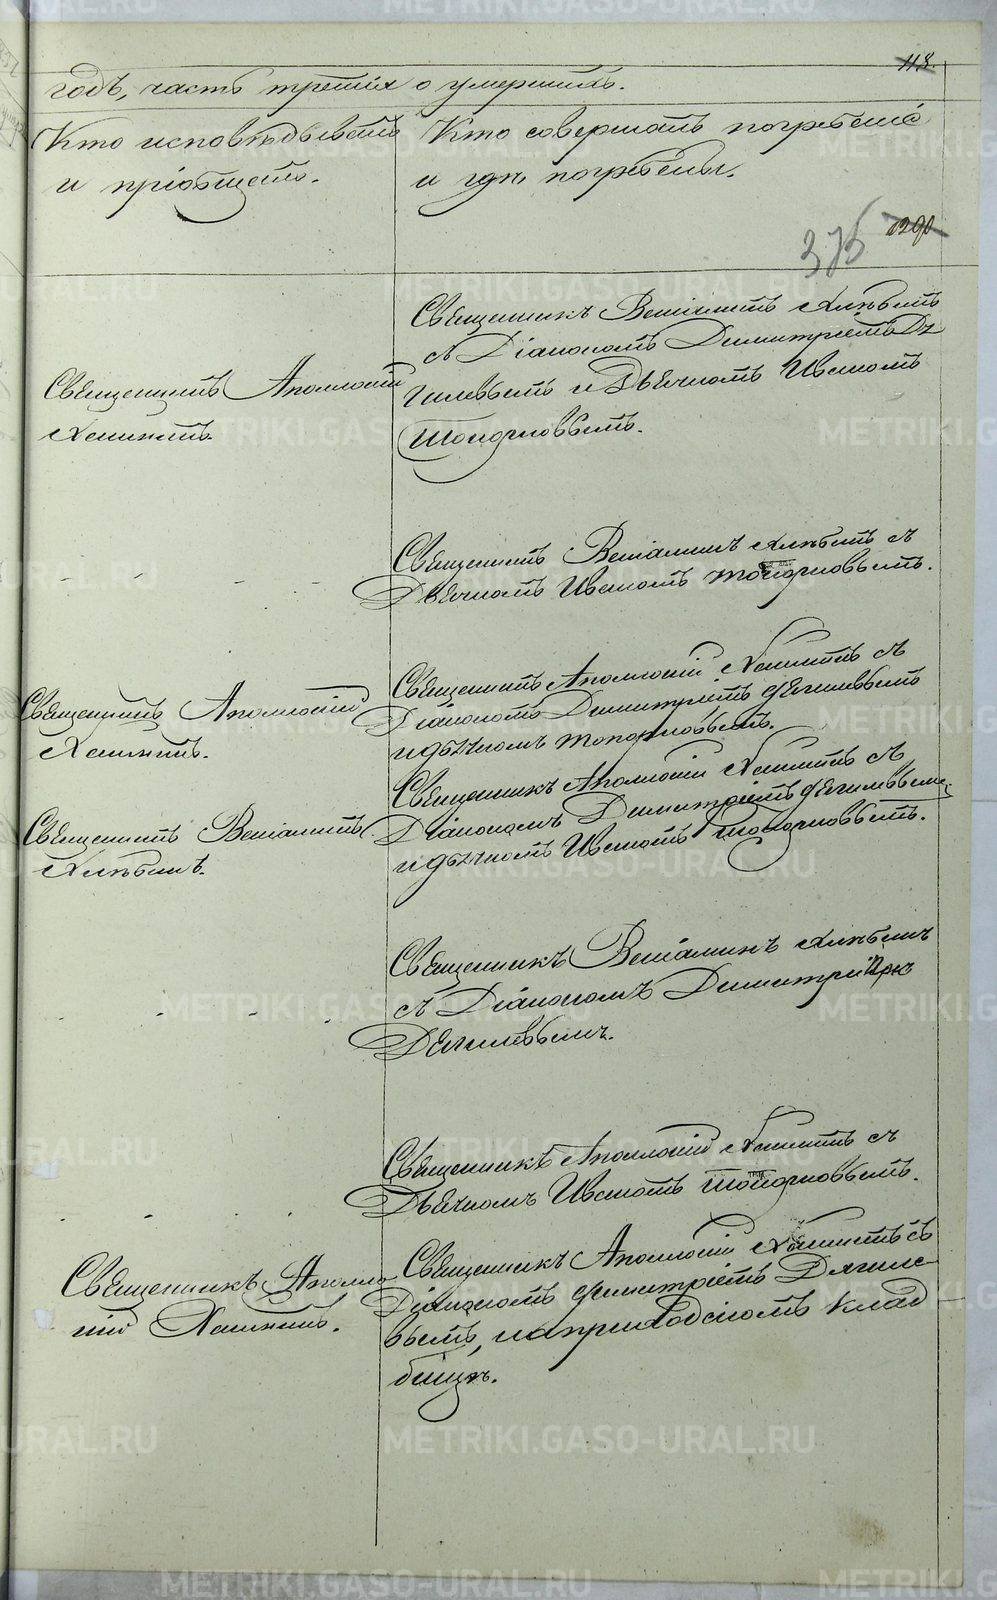 118.
годъ, часть третія о умершихъ.
Кто исповѣдывалъ
и пріобщалъ.
Кто совершалъ погребеніе
и гдѣ погребены.
375 1290
Священникъ Аполлоній
Священникъ Веніаминъ
съ Діакономъ Димитріемъ Дя
гилевымъ и Дьячкомъ Иваномъ
Топорковымъ.
Священникъ Веніаминъ съ
Дьячкомъ Иваномъ Топорковымъ.
Священникъ Аполлоній
Священникъ Аполлоній съ
Діакономъ Димитріемъ Дягилевымъ
и дьячкомъ Топорковымъ.
Священникъ Веніаминъ
Священникъ Аполлоній съ
Діакономъ Димитріемъ Дягилевымъ
и дьячкомъ Иваномъ Топорковымъ.
Священникъ Веніаминъ
съ Діакономъ Димитріемъ
Дягилевымъ.
Священникъ Аполлоній съ
Дьячкомъ Иваномъ Топорковымъ.
Священникъ Аполло
ній
Священникъ Аполлоній съ
Діакономъ Димитріемъ Дягиле
вымъ, на приходскомъ клад
бищѣ.
METRIKI.GASO-URAL.RU